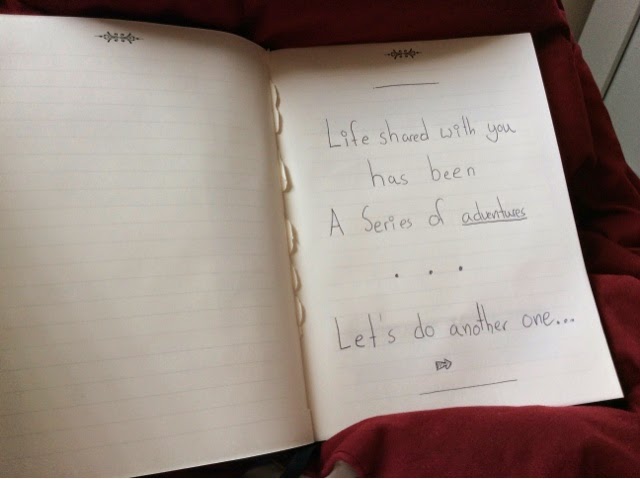 Life shared with you
has been
A Series of adventures
. . .
Let's do another one...